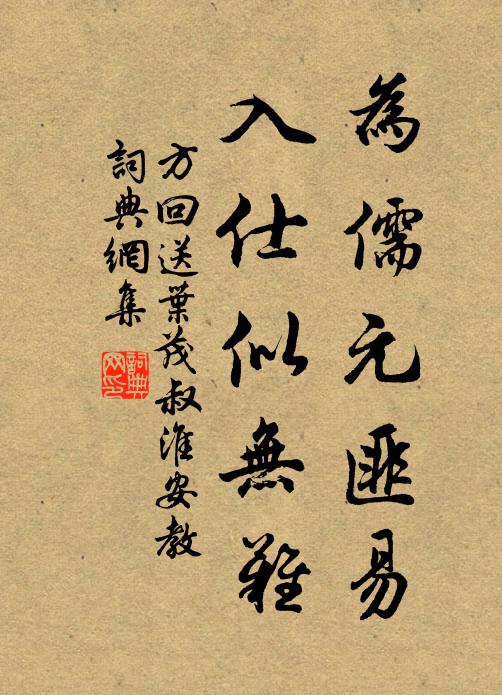 為儒元匪易
入仕似無難
方回送葉茂叔淮安教
詞典網集
詞典
网印